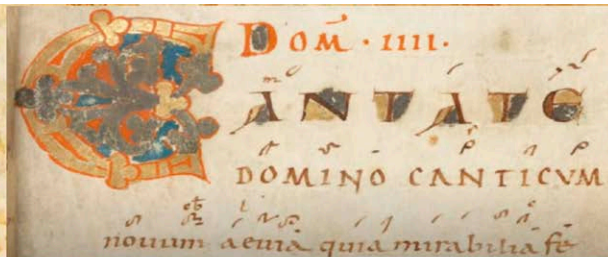 DOM̅ · IIII ·
CANTATE
DOMINO CANTICVM
nouum aeuia quia mirabilia fe